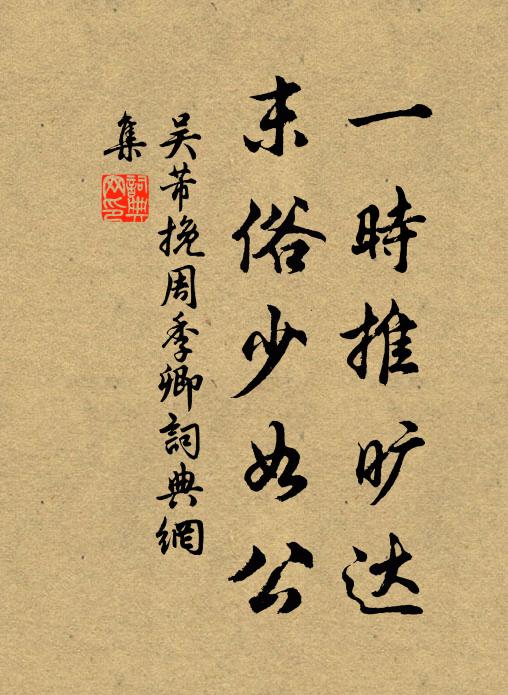 一時推旷达
末俗少如公
吴芾挽周季卿詞典網
集
詞典
网印